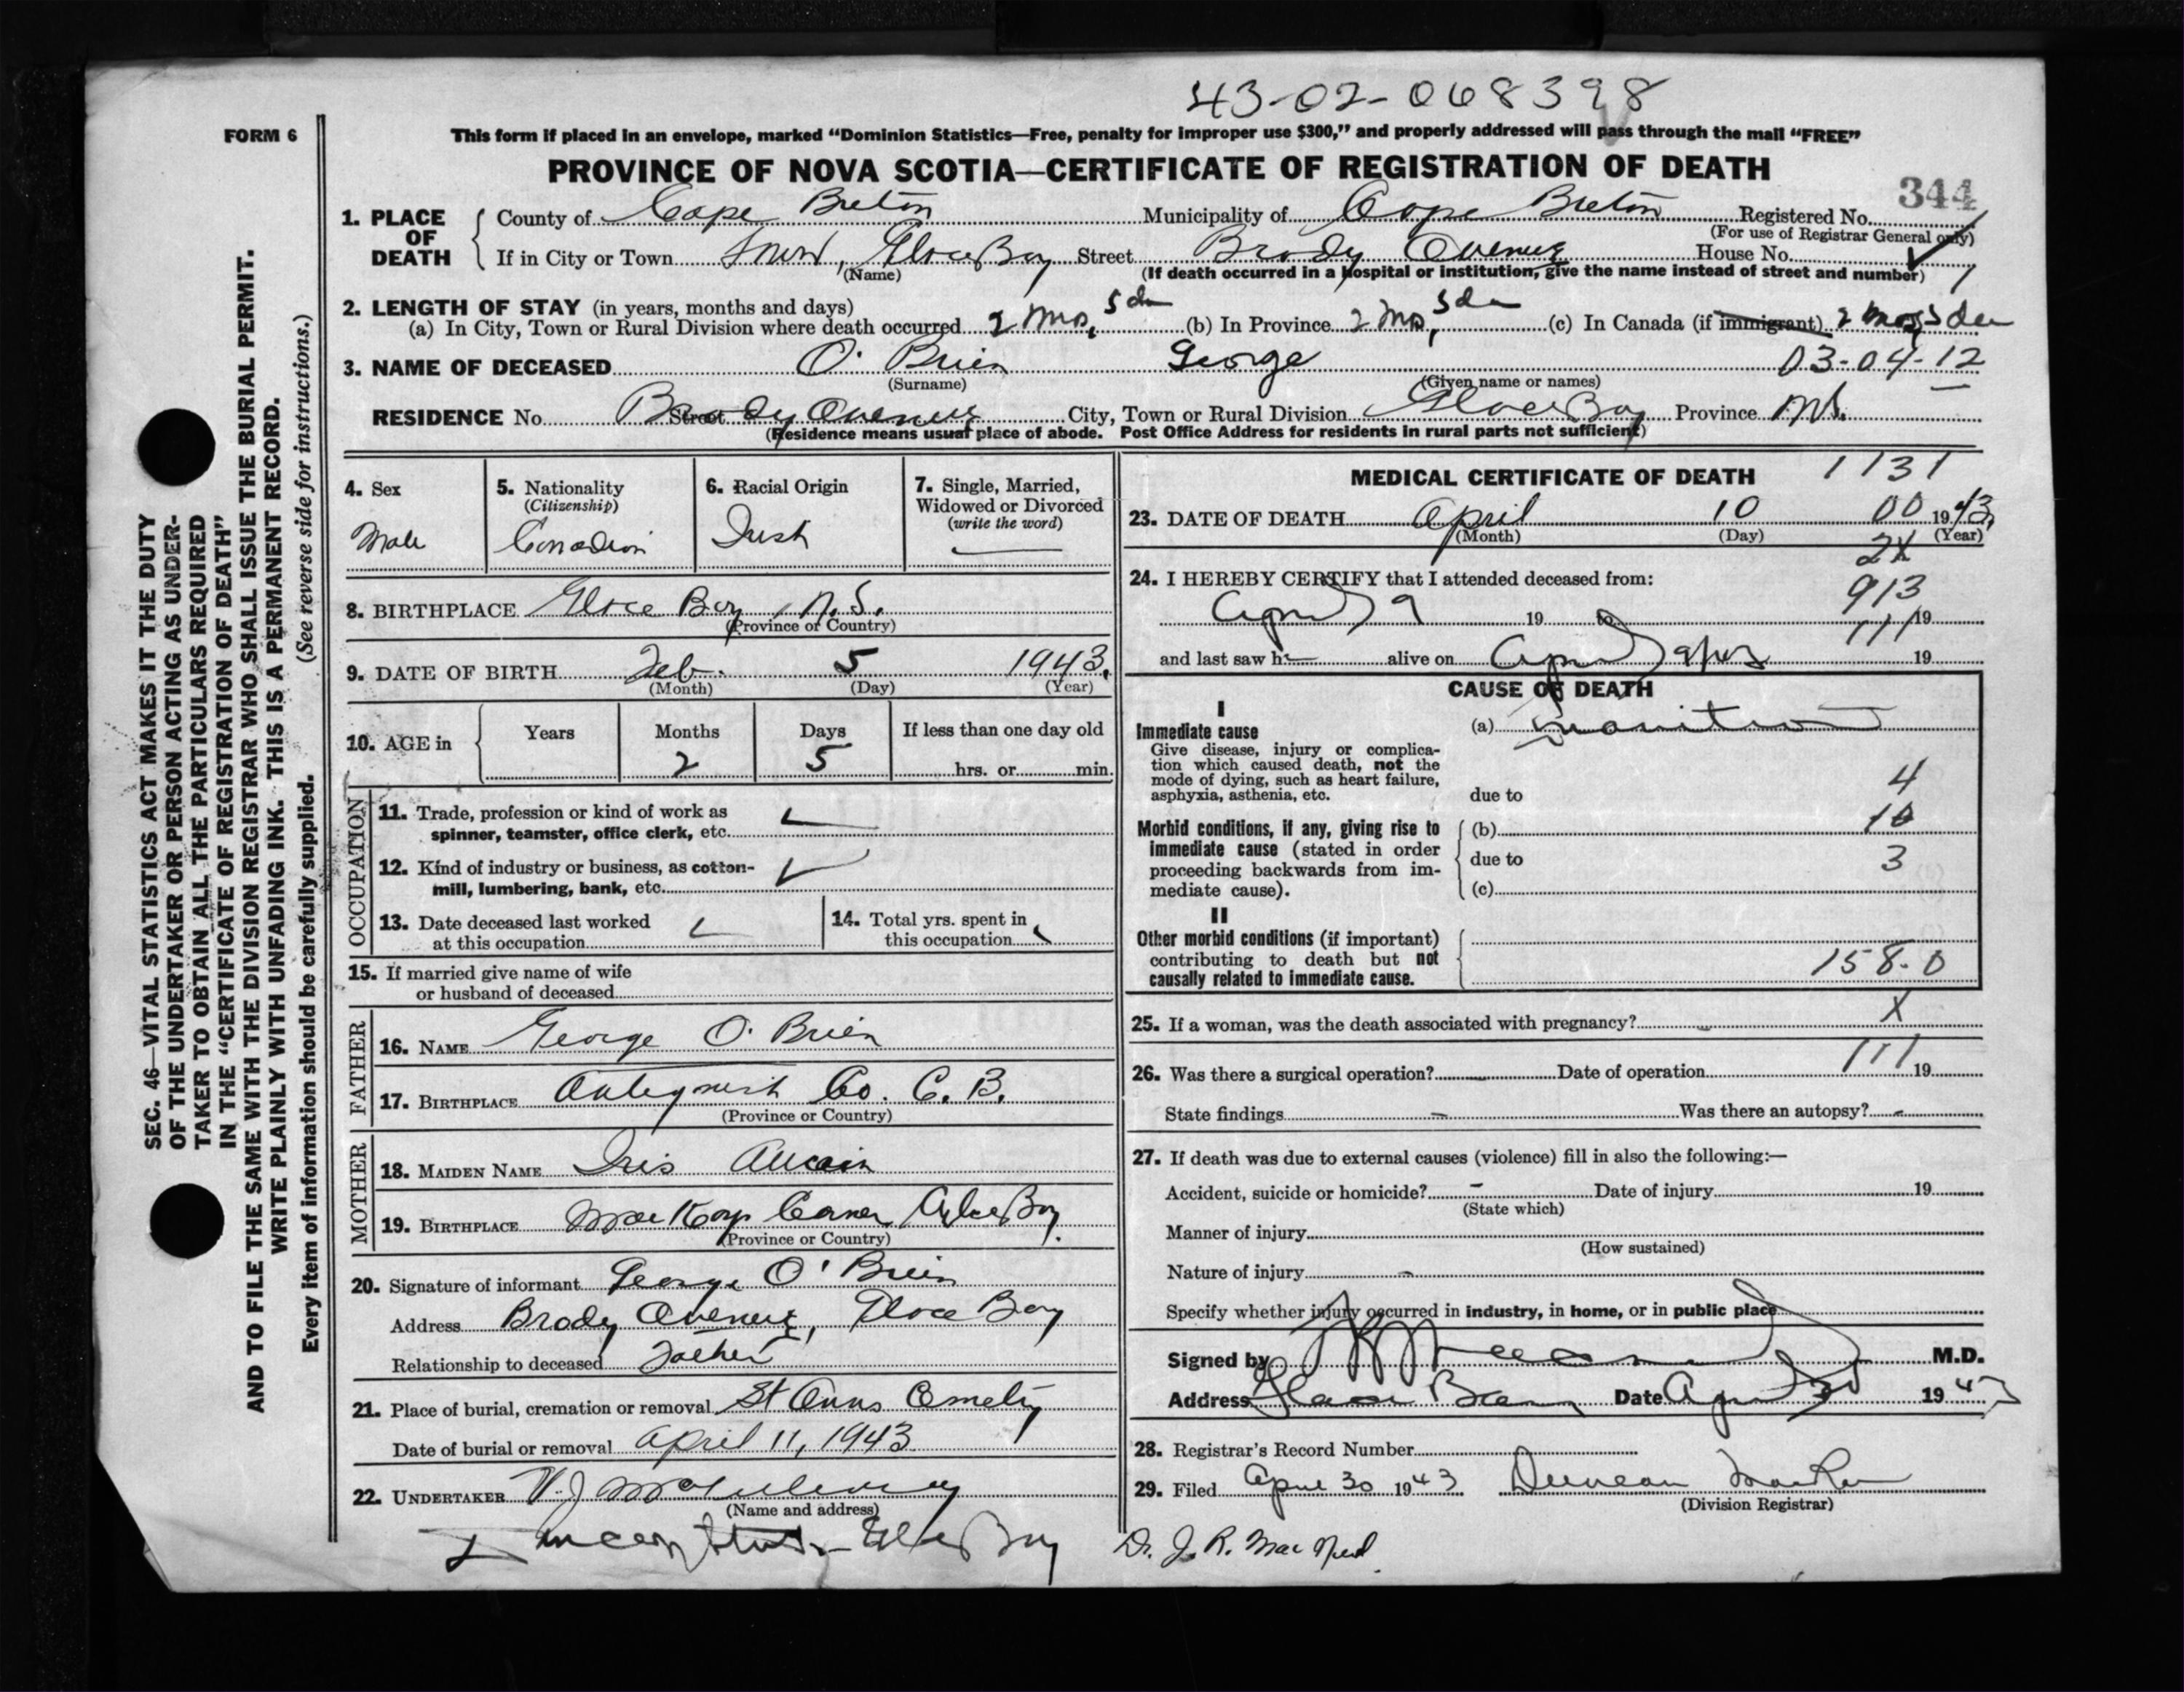 43-02-068398
FORM 6
This form if placed in an envelope, marked “Dominion Statistics—Free, penalty for improper use $300,” and properly addressed will pass through the mail “FREE”
PROVINCE OF NOVA SCOTIA—CERTIFICATE OF REGISTRATION OF DEATH
344
1. PLACE OF DEATH
County of Cape Breton Municipality of Cape Breton Registered No.
(For use of Registrar General only)
If in City or Town Town, Glace Bay Street Brody Avenue House No.
(Name) (If death occurred in a hospital or institution, give the name instead of street and number)
2. LENGTH OF STAY (in years, months and days)
(a) In City, Town or Rural Division where death occurred 2 mos, 5 da (b) In Province 2 mos, 5 da (c) In Canada (if immigrant) 2 mos, 5 da
3. NAME OF DECEASED O'Brien George 03-04-12
(Surname) (Given name or names)
RESIDENCE No. Street Brody Avenue City, Town or Rural Division Glace Bay Province N.S.
(Residence means usual place of abode. Post Office Address for residents in rural parts not sufficient)
4. Sex
Male
5. Nationality
(Citizenship)
Canadian
6. Racial Origin
Irish
7. Single, Married, Widowed or Divorced
(write the word)
8. BIRTHPLACE Glace Bay, N.S.
(Province or Country)
9. DATE OF BIRTH Feb. 5 1943.
(Month) (Day) (Year)
10. AGE in Years Months Days If less than one day old
2 5 hrs. or min.
OCCUPATION
11. Trade, profession or kind of work as
spinner, teamster, office clerk, etc.
12. Kind of industry or business, as cotton-
mill, lumbering, bank, etc.
13. Date deceased last worked
at this occupation
14. Total yrs. spent in
this occupation
15. If married give name of wife
or husband of deceased
FATHER
16. NAME George O'Brien
17. BIRTHPLACE Antigonish Co. C. B.
(Province or Country)
MOTHER
18. MAIDEN NAME Iris Aucoin
19. BIRTHPLACE MacKays Corner Glace Bay.
(Province or Country)
20. Signature of informant George O'Brien
Address Brody Avenue, Glace Bay
Relationship to deceased Father
21. Place of burial, cremation or removal St Anns Cemetry
Date of burial or removal April 11, 1943
22. UNDERTAKER V. J.
(Name and address)
Glace Bay
MEDICAL CERTIFICATE OF DEATH 1131
23. DATE OF DEATH April 10 00 1943.
(Month) (Day) (Year)
2X
24. I HEREBY CERTIFY that I attended deceased from:
913
April 9 19 to 19
111
and last saw h alive on April 19
CAUSE OF DEATH
I
Immediate cause
Give disease, injury or complica-
tion which caused death, not the
mode of dying, such as heart failure,
asphyxia, asthenia, etc.
(a) Inanition
4
due to
Morbid conditions, if any, giving rise to
immediate cause (stated in order
proceeding backwards from im-
mediate cause).
(b) 10
due to 3
(c)
II
Other morbid conditions (if important)
contributing to death but not
causally related to immediate cause.
158-0
25. If a woman, was the death associated with pregnancy? X
26. Was there a surgical operation? Date of operation 111 19
State findings Was there an autopsy?
27. If death was due to external causes (violence) fill in also the following:—
Accident, suicide or homicide? Date of injury 19
(State which)
Manner of injury
(How sustained)
Nature of injury
Specify whether injury occurred in industry, in home, or in public place
Signed by M.D.
Address Glace Bay Date April 1943
28. Registrar's Record Number
29. Filed April 30 1943 Duncan
(Division Registrar)
Dr. J. R. MacNeil
SEC. 46—VITAL STATISTICS ACT MAKES IT THE DUTY
OF THE UNDERTAKER OR PERSON ACTING AS UNDER-
TAKER TO OBTAIN ALL THE PARTICULARS REQUIRED
IN THE “CERTIFICATE OF REGISTRATION OF DEATH”
AND TO FILE THE SAME WITH THE DIVISION REGISTRAR WHO SHALL ISSUE THE BURIAL PERMIT.
WRITE PLAINLY WITH UNFADING INK. THIS IS A PERMANENT RECORD.
Every item of information should be carefully supplied. (See reverse side for instructions.)